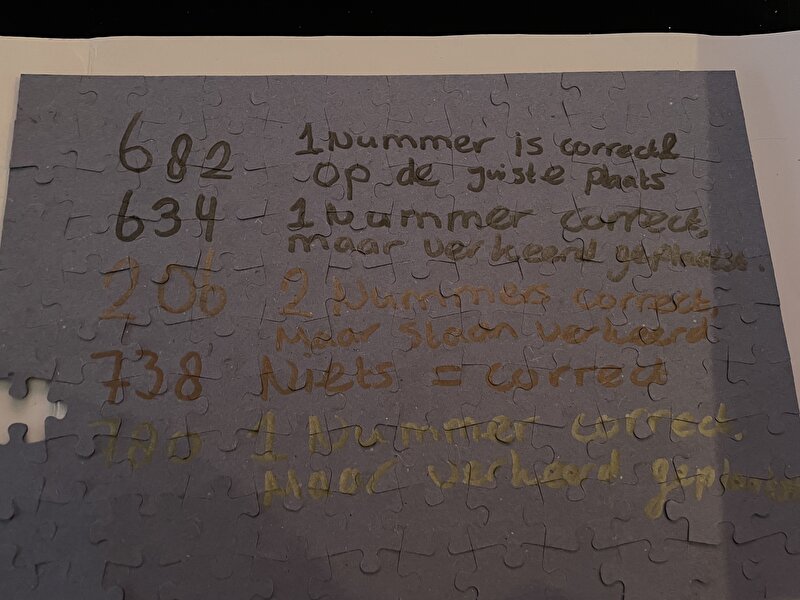 682 1 Nummer is correct
op de juiste plaats
634 1 Nummer correct,
maar verkeerd geplaatst.
206 2 Nummers correct,
Maar staan verkeerd
738 Niets = correct
780 1 Nummer correct.
Maar verkeerd geplaatst